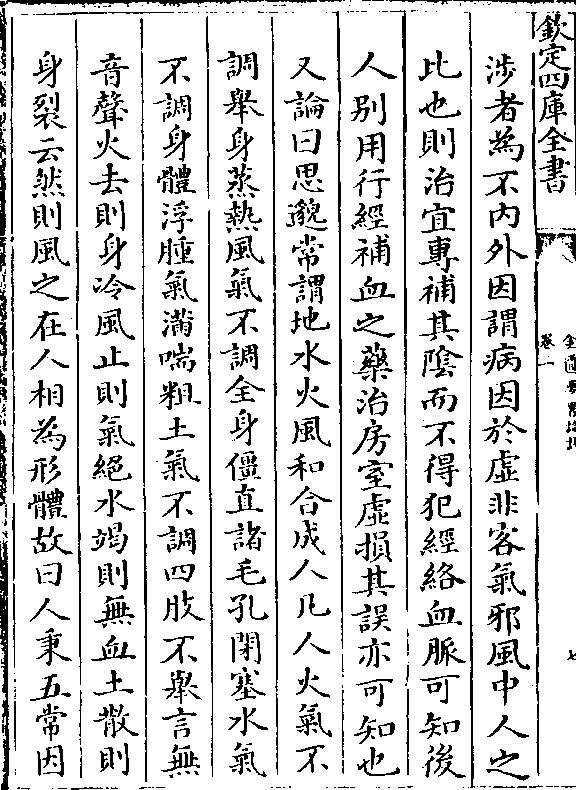 欽定四庫全書
卷一
涉者為不内外因謂病因於虛非客氣邪風中人之
比也則治宜專補其陰而不得犯經絡血脈可知後
人别用行經補血之藥治房室虛損其誤亦可知也
又論曰思邈常謂地水火風和合成人凡人火氣不
調舉身蒸熱風氣不調全身僵直諸毛孔閉塞水氣
不調身體浮腫氣滿喘粗土氣不調四肢不舉言無
音聲火去則身冷風止則氣絕水竭則無血土散則
身裂云然則風之在人相為形體故曰人秉五常因